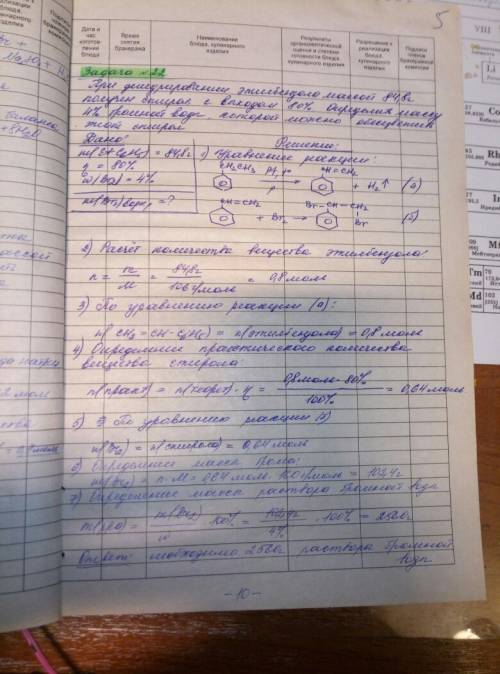 5
Дата и час изготовления блюда
Время снятия бракеража
Наименование блюда, кулинарного изделия
Результаты органолептической оценки и степени готовности блюда кулинарного изделия
Разрешение к реализации блюда, кулинарного изделия
Подписи членов бракеражной комиссии
Задача №22
При дегидрировании этилбензола массой 84,8г
получен стирол с выходом 80%. Определите массу
4% бромной воды, которой можно обесцветить
этот стирол
Дано: Решение:
m(Et C₆H₅) = 84,8г 1) Уравнение реакции:
η = 80% CH₂CH₃ CH=CH₂
ω(Br₂) = 4% + H₂↑ (а)
m(Br₂) = ? CH=CH₂ + Br₂ → Br-CH-CH₂ Br (б)
2) Расчёт количества вещества этилбензола:
n = m/M = 84,8г/106г/моль = 0,8 моль
3) По уравнению реакции (а):
n(CH₂=CH-C₆H₅) = n(этилбензола) = 0,8 моль
4) Определение практического количества
вещества стирола:
n(практ) = n(теорет)·η = 0,8моль·80%/100% = 0,64 моль
5) По уравнению реакции (б)
n(Br₂) = n(стирола) = 0,64 моль
6) Определение массы брома:
m(Br₂) = n·M = 0,64 моль·160г/моль = 102,4г
7) Определение массы раствора бромной воды
m(р-ра) = m(Br₂)/ω ·100% = 102,4г/4% ·100% = 2560г
Ответ: необходимо 2560г раствора бромной
воды
-10-
VIII
Li
Co
Rh
Ir
Mt
Tm
Md